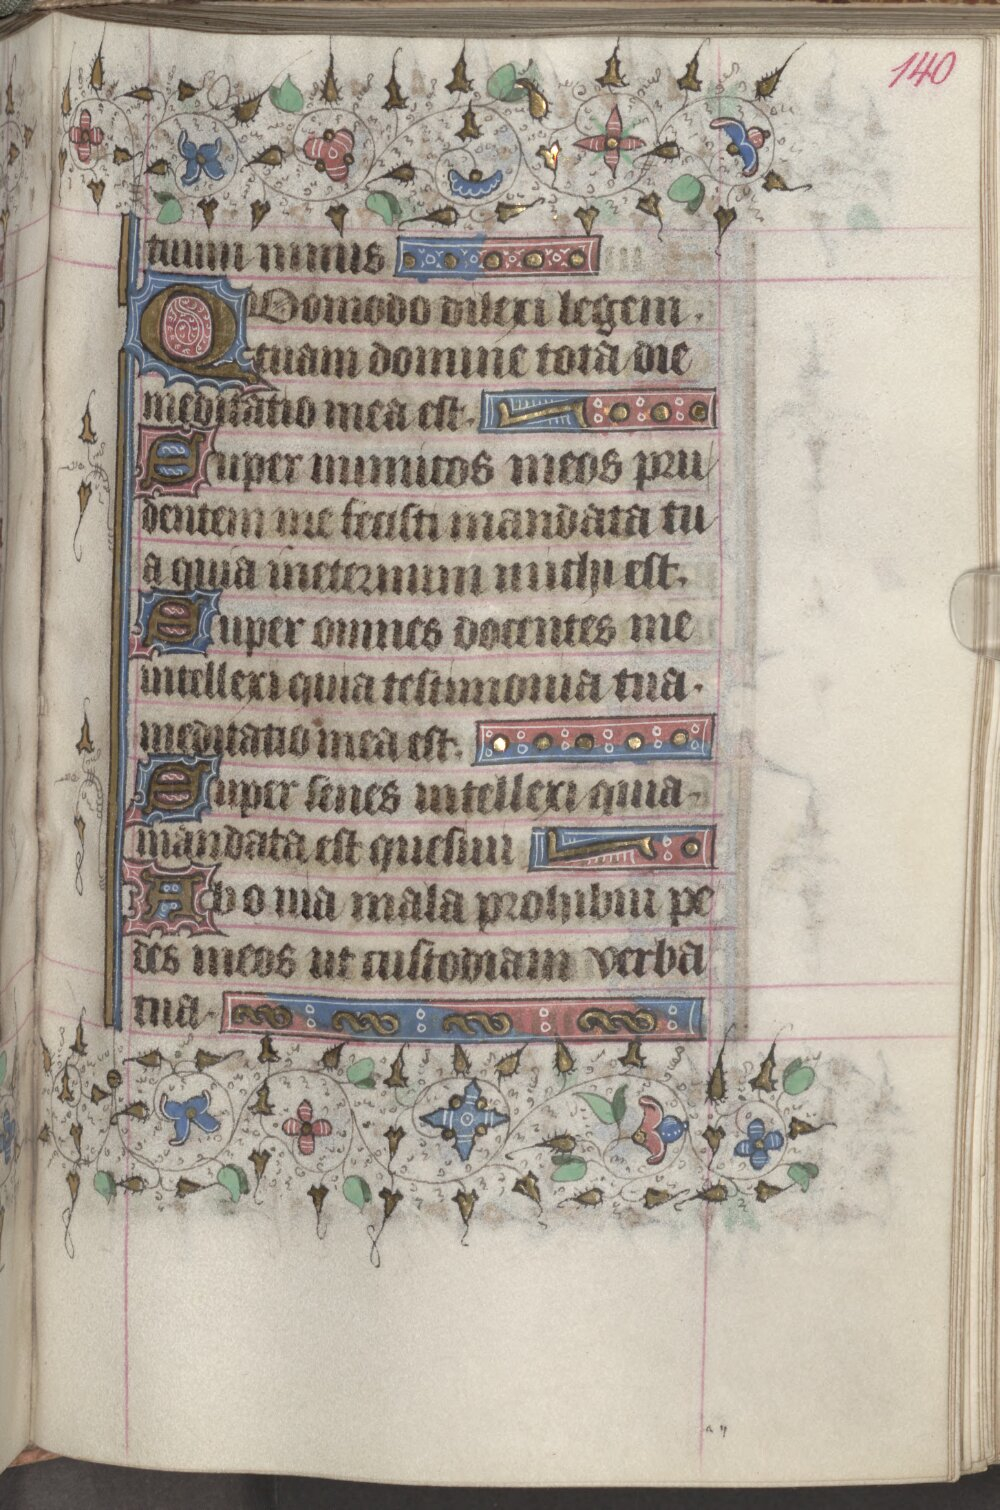 140
tuum nimis
Quomodo dilexi legem
tuam domine tota die
meditatio mea est.
Super inimicos meos pru
dentem me fecisti mandata tu
a quia ineternum michi est.
Super omnes docentes me
intellexi quia testimonia tua.
meditatio mea est.
Super senes intellexi quia
mandata est quesiui
Ab o nia mala prohibui pe
des meos ut custodiam verba
tua.